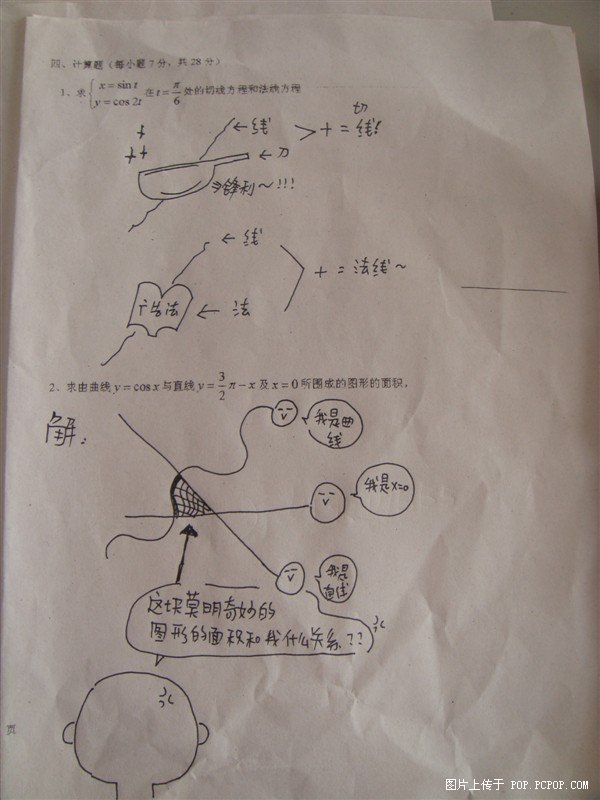 四、计算题（每小题7分，共28分）
1、求{x=sin t
y=cos 2t 在t=π/6处的切线方程和法线方程
切
+ ← 线 > + = 线!
++ ← 刀
⇒锋利~!!!
← 线
+ = 法线~
广告法 ← 法
2、求由曲线y=cos x与直线y=3/2π-x及x=0所围成的图形的面积，
解：
我是曲
线
我是x=0
我是
直线
这块莫明奇妙的
图形的面积和我什么关系??
页
图片上传于 POP.PCPOP.COM